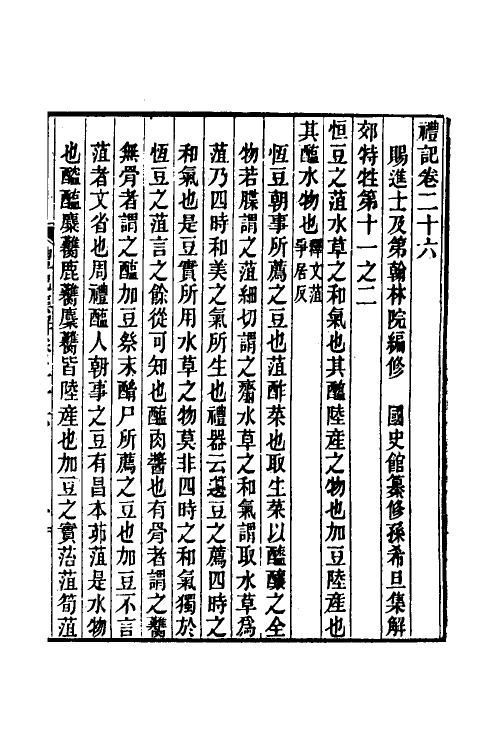 禮記卷二十六
賜進士及第翰林院編修 國史館纂修孫希旦集解
郊特牲第十一之二
恒豆之菹水草之和氣也其醢陸產之物也加豆陸產也
其醢水物也釋文菹爭居反
恆豆朝事所薦之豆也菹酢菜也取生菜以醯釀之全
物若䐑謂之菹細切謂之齏水草之和氣謂取水草爲
菹乃四時和美之氣所生也禮器云籩豆之薦四時之
和氣也是豆實所用水草之物莫非四時之和氣獨於
恆豆之菹言之餘從可知也醢肉醬也有骨者謂之臡
無骨者謂之醢加豆祭末酳尸所薦之豆也加豆不言
菹者文省也周禮醢人朝事之豆有昌本茆菹是水物
也醓醢麋臡鹿臡麇臡皆陸產也加豆之實菭菹筍菹